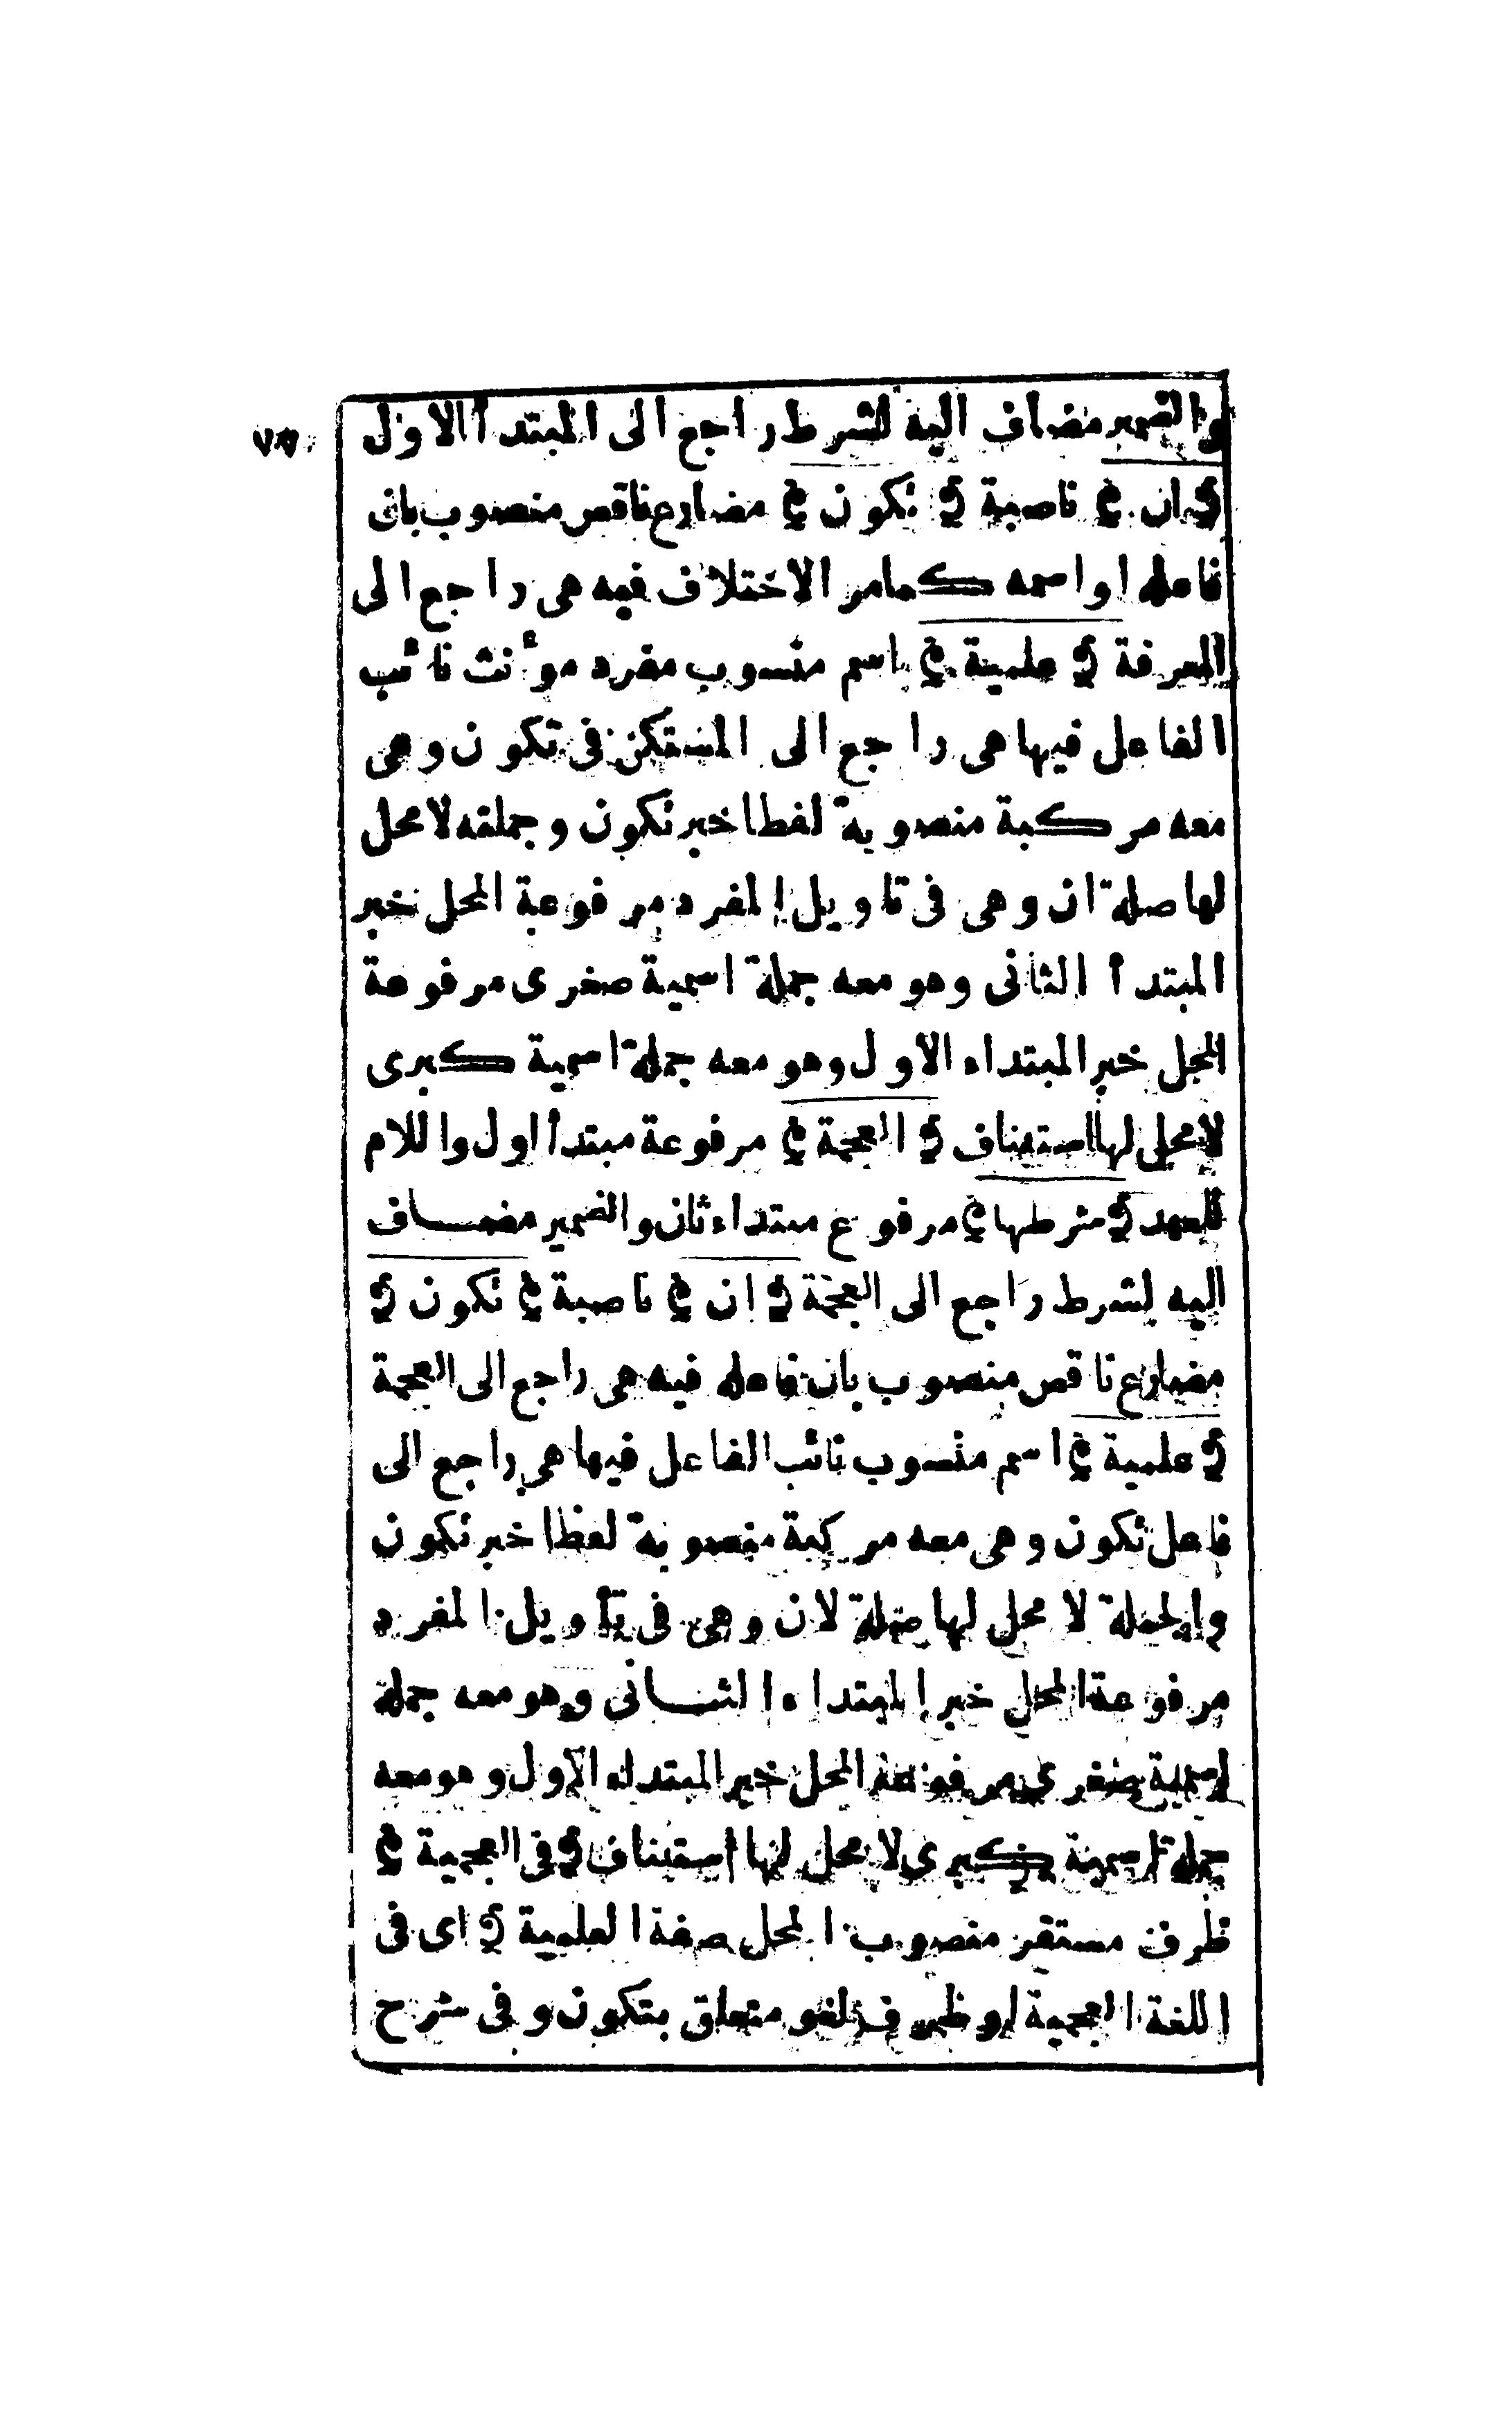 والضمير مضاف اليه لشرط راجع الى المبتدأ الاول
﴿ ان ﴾ ناصبة ﴿ تكون ﴾ مضارع ناقص منصوب بان
فاعله اواسمه كمامر الاختلاف فيه هى راجع الى
المعرفة ﴿ علمية ﴾ اسم منسوب مفرد مؤنث نائب
الفاعل فيها هى راجع الى المستكن فى تكون وهى
معه مركبة منصوبة لفظا خبر تكون وجملته لا محل
لها صلة ان وهى فى تاويل المفرد مرفوعة المحل خبر
المبتدأ الثانى وهو معه جملة اسمية صغرى مرفوعة
المحل خبر المبتداء الاول وهو معه جملة اسمية كبرى
لا محل لها استيناف ﴿ العجمة ﴾ مرفوعة مبتدأ اول واللام
للعهد ﴿ شرطها ﴾ مرفوع مبتداء ثان والضمير مضاف
اليه لشرط راجع الى العجمة ﴿ ان ﴾ ناصبة ﴾ تكون ﴿
مضارع ناقص منصوب بان فاعله فيه هى راجع الى العجمة
﴿ علمية ﴾ اسم منسوب نائب الفاعل فيها هى راجع الى
فاعل تكون وهى معه مركبة منصوبة لفظا خبر تكون
والجملة لا محل لها صلة لان وهى فى تأويل المفرد
مرفوعة المحل خبر المبتداء الثانى وهو معه جملة
اسمية صغرى مرفوعة المحل خبر المبتداء الاول وهو معه
جملة اسمية كبرى لا محل لها استيناف ﴿ فى العجمية ﴾
ظرف مستقر منصوب المحل صفة العلمية ﴿ اى فى
اللغة العجمية او ظرف لغو متعلق بتكون وفى شرح